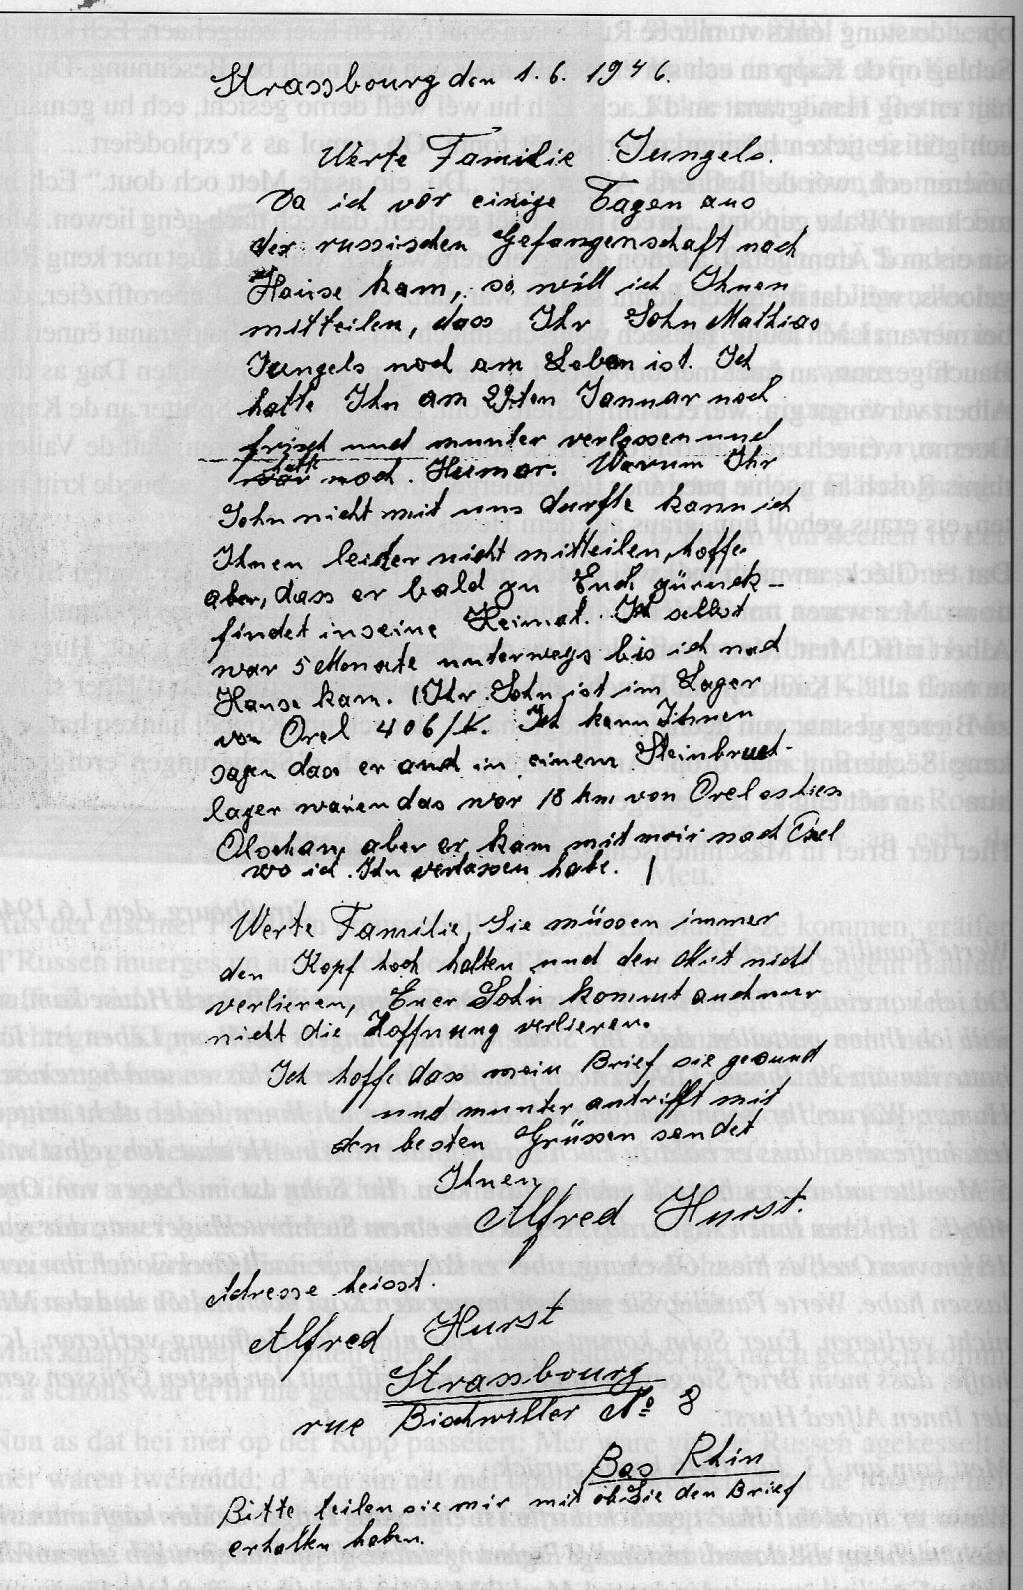 Strassbourg den 1.6.1946.
Werte Familie Jungels.
Da ich vor einige Tagen aus
der russischen Gefangenschaft nach
Hause kam, so will ich Ihnen
mitteilen, dass Ihr Sohn Mathias
Jungels noch am Leben ist. Ich
hatte Ihn am 29ten Januar noch
frisch und munter verlassen und
hatte noch Humor. Warum Ihr
Sohn nicht mit uns durfte kann ich
Ihnen leider nicht mitteilen, hoffe
aber, dass er bald zu Euch zürück-
findet in seine Heimat. Ich selbst
war 5 Monate unterwegs bis ich nach
Hause kam. Ihr Sohn ist im Lager
von Orel 406/K. Ich kann Ihnen
sagen dass er auch in einem Steinbruch-
lager waren das war 18 km von Orel es hies
Olschan aber er kam mit mir nach Orel
wo ich Ihn verlassen habe.
Werte Familie, Sie müssen immer
den Kopf hoch halten und den Mut nicht
verlieren, Euer Sohn kommt auch nur
nicht die Hoffnung verlieren.
Ich hoffe dass mein Brief sie gesund
und munter antrifft mit
den besten Grüssen sendet
Ihnen
Alfred Hurst.
Adresse heisst.
Alfred Hurst
Strassbourg
rue Bischwiller No 8
Bas Rhin
Bitte teilen sie mir mit ob Sie den Brief
erhalten haben.